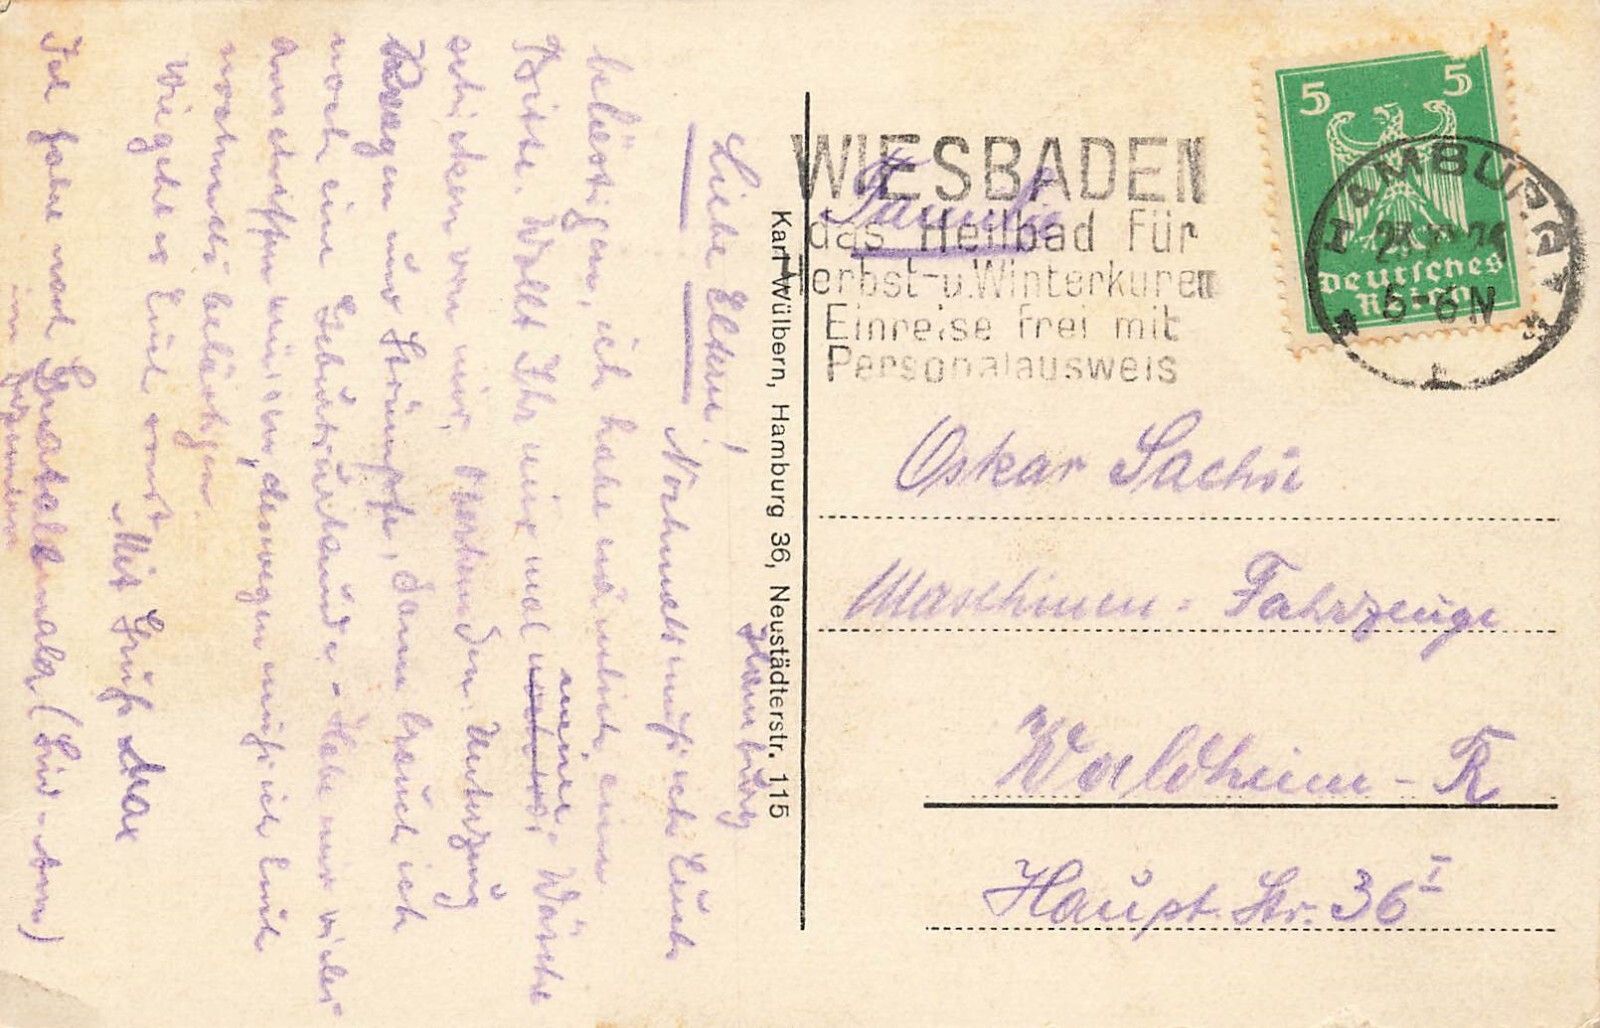 Hamburg
Liebe Eltern!
Nochmals muß ich Euch
belästigen, ich habe nämlich eine
Bitte. Wollt Ihr mir mal meine Wäsche
schicken von mir, Hemden, Unterzug
Kragen und Strümpfe, dann brauch ich
noch eine Geburtsurkunde. Habe mir vieles
anschaffen müssen, deswegen muß ich Euch
nochmals belästigen.
Wie geht es Euch sonst
Mit Gruß Max
Ich fahre nach
WIESBADEN
das Heilbad für
Herbst- u. Winterkuren
Einreise frei mit
Personalausweis
5 5
Deutsches
Reich
HAMBURG
5-6 N
1
Familie
Oskar Sachse
Maschinen-Fahrzeuge
Waldheim-R
Haupt. Str. 36 I
Karl Wülbern, Hamburg 36, Neustädterstr. 115